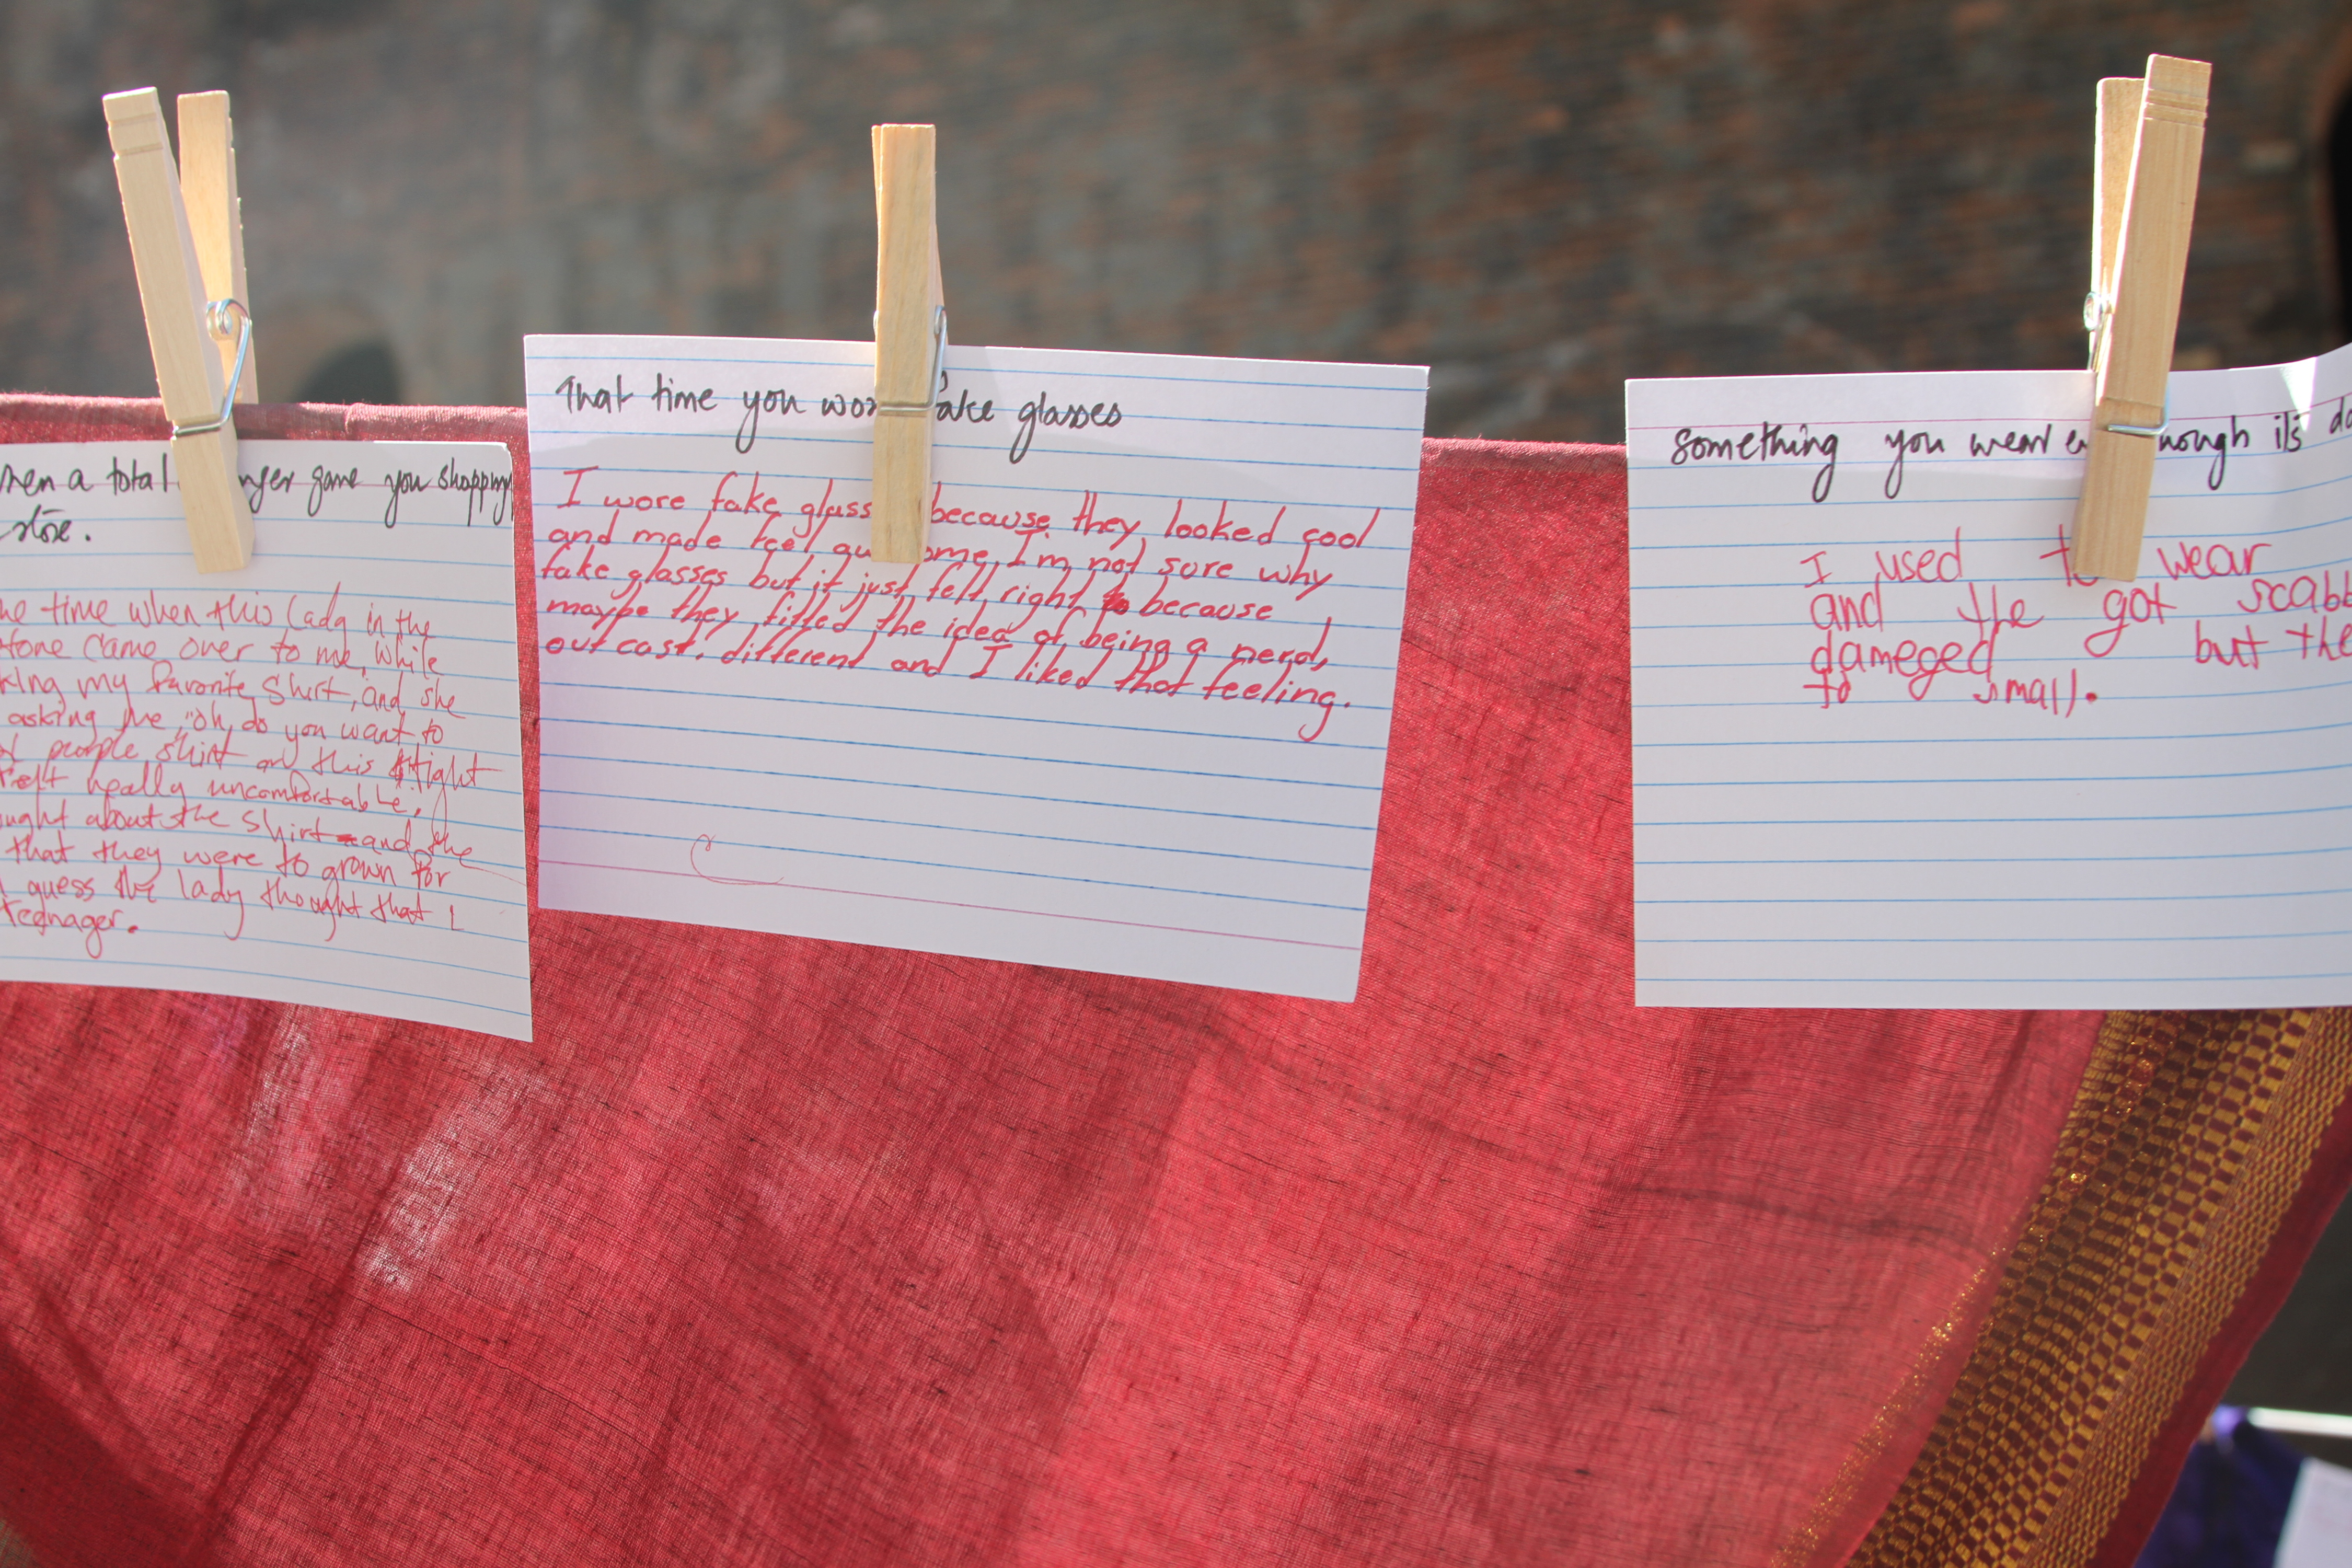 when a total nger gave you shopping
store.
me time when this lady in the
store came over to me, while
king my favorite shirt, and she
asking me, "oh do you want to
purple shirt or this tight
felt really uncomfortable,
ught about the shirt and the
that they were to grown for
guess the lady thought that I
teenager.
That time you wor fake glasses
I wore fake glass because they looked cool
and made feel ome, I'm not sure why
fake glasses but it just felt right because
maybe they fitted the idea of being a nerd,
outcast, different and I liked that feeling.
something you wear e hough it's da
I used to wear
and the got scabb
dameged but the
to small.